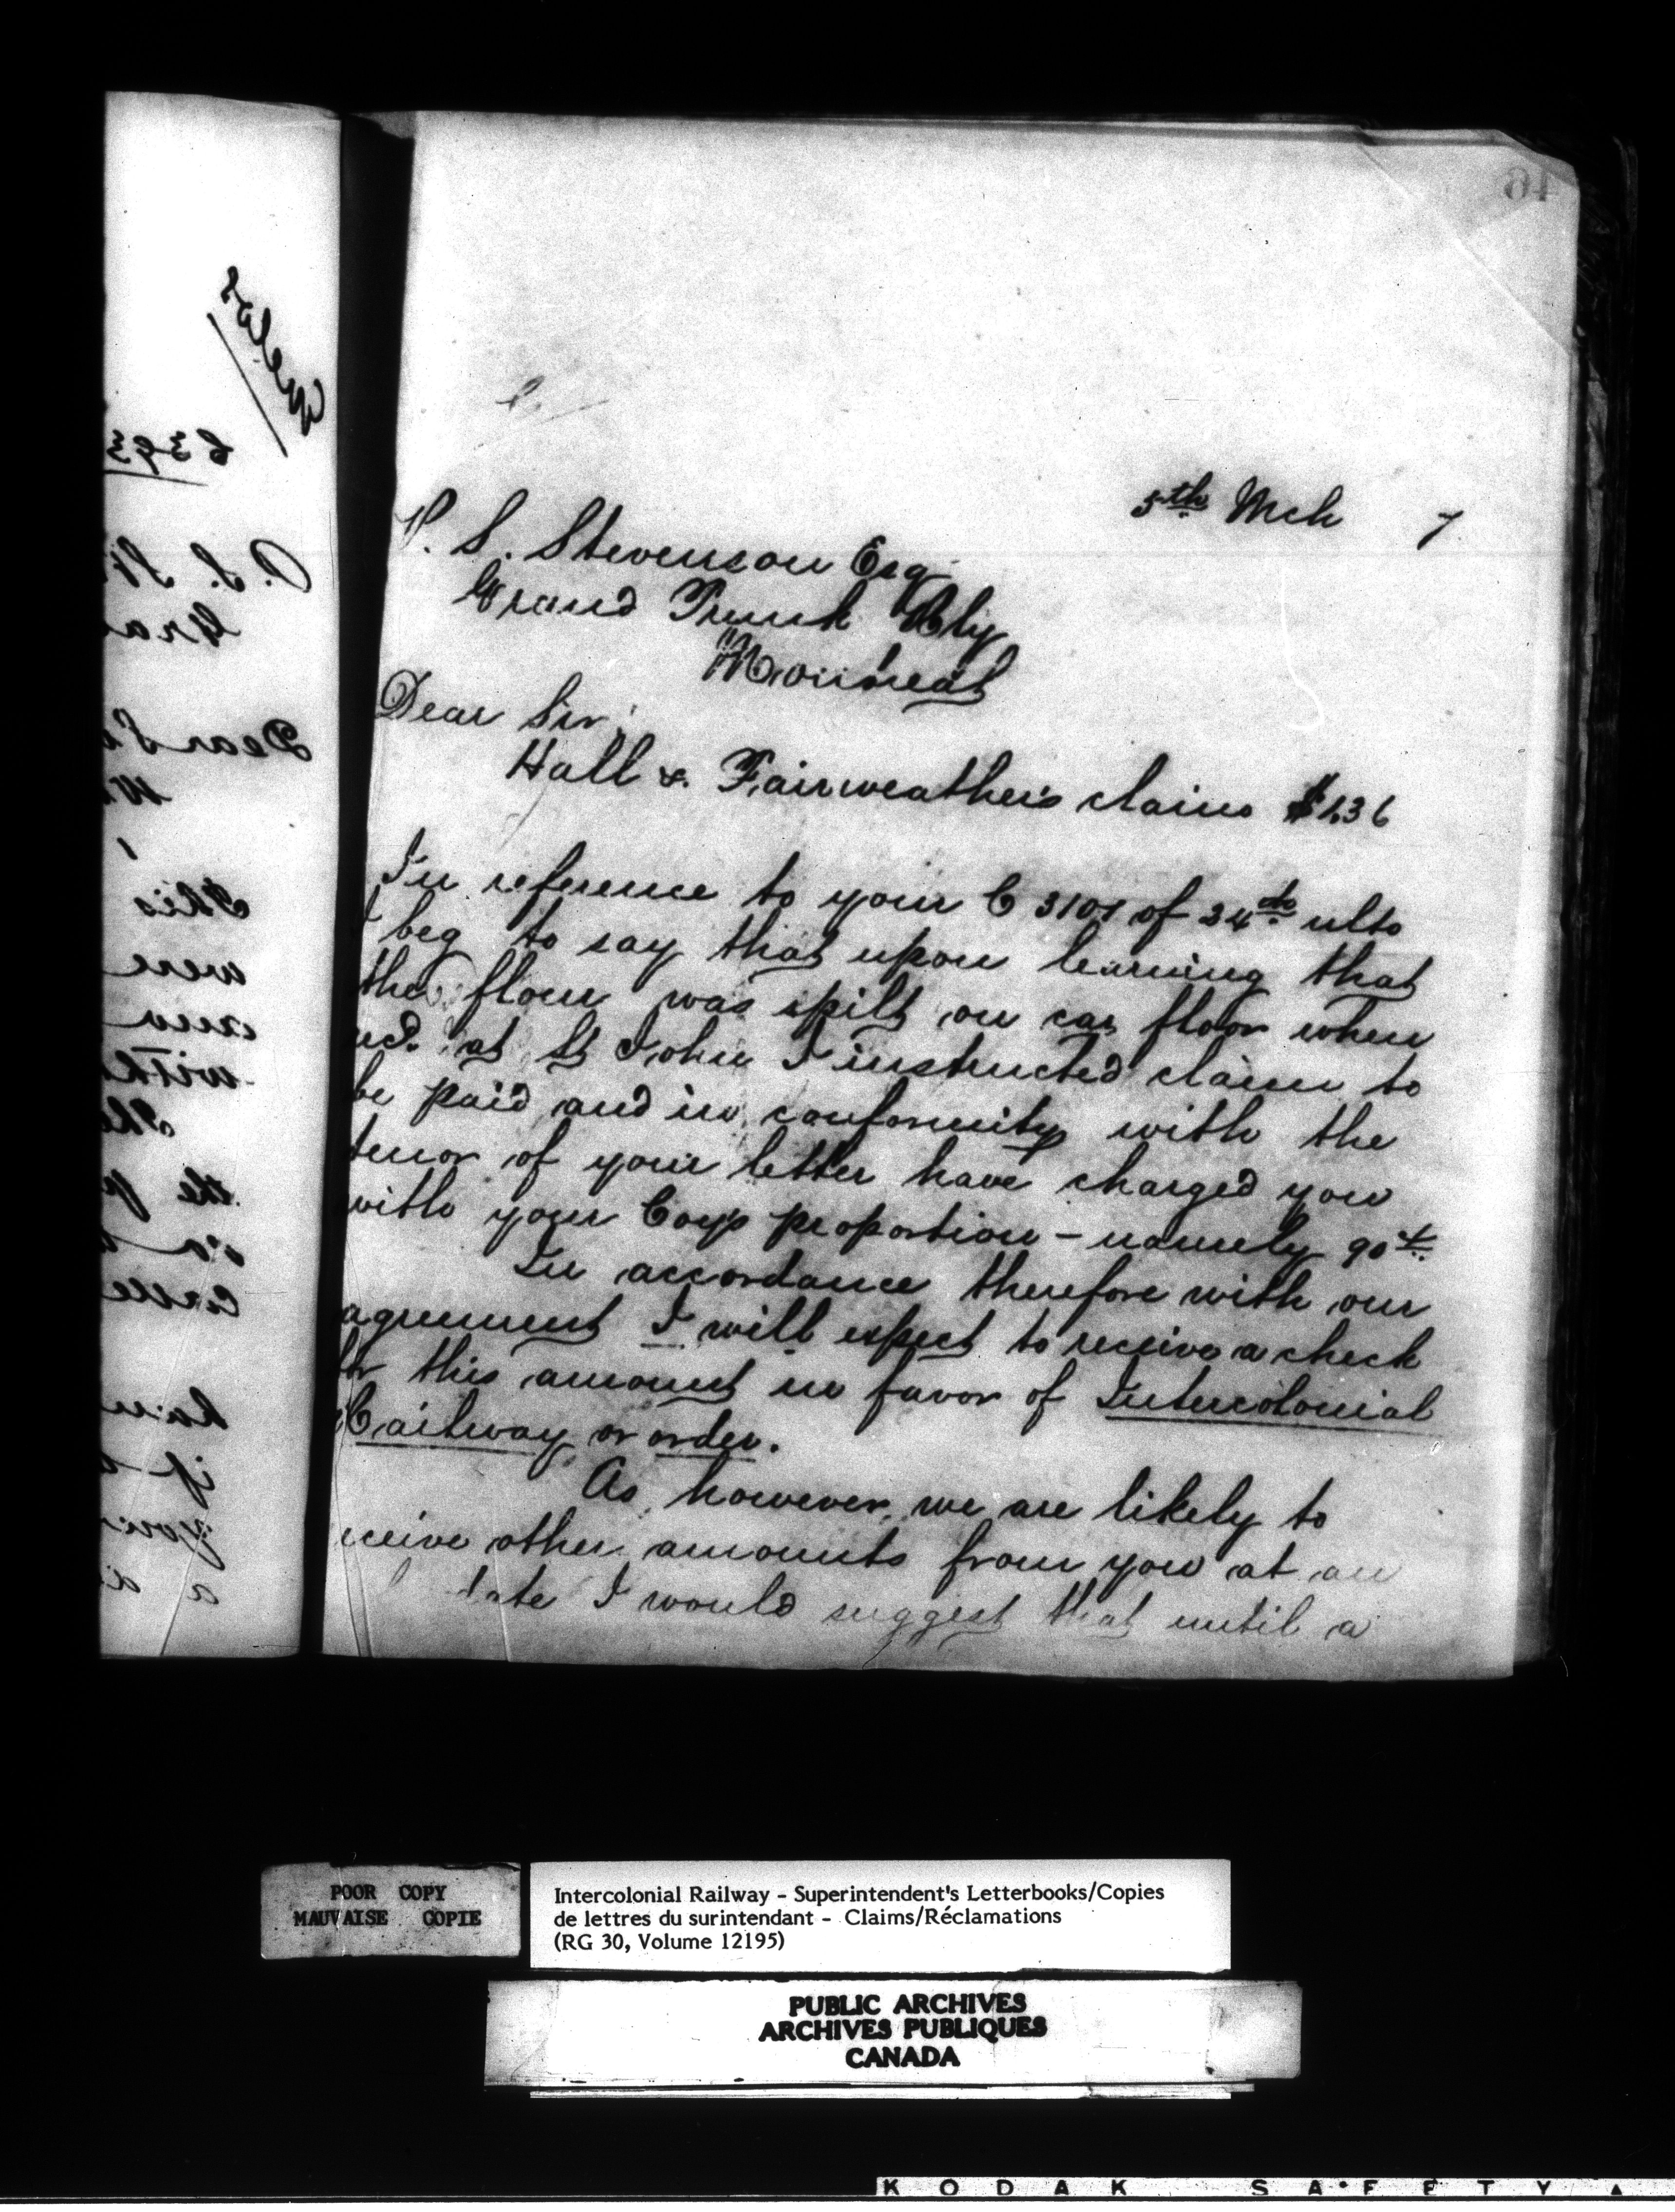 5th Mch 7
P. S. Stevenson Esq
Grand Trunk Rly
Montreal
Dear Sir;
Hall & Fairweather's claim $1.36
In reference to your C 3101 of 24th ulto
I beg to say that upon learning that
the flour was spilt on car floor when
recd. at St John I instructed claim to
be paid and in conformity with the
tenor of your letter have charged you
with your Coy's proportion - namely 90¢.
In accordance therefore with our
agreement I will expect to receive a check
for this amount in favor of Intercolonial
Railway or order.
As however, we are likely to
receive other amounts from you at an
date I would suggest that until a
POOR COPY
MAUVAISE COPIE
Intercolonial Railway - Superintendent's Letterbooks/Copies
de lettres du surintendant - Claims/Réclamations
(RG 30, Volume 12195)
PUBLIC ARCHIVES
ARCHIVES PUBLIQUES
CANADA
KODAK SAFETY